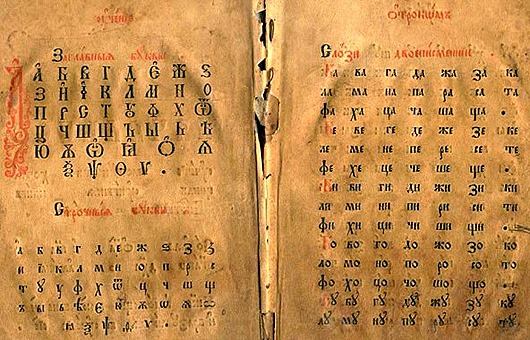 Заглавныѧ бꙋквы
А Б В Г Д Є Ж Ѕ
З И І К Л М Н О
П Р С Т Ꙋ Ф Х Ѿ
Ц Ч Ш Щ Ъ Ы Ь Ѣ
Ю Ѫ Ѡ О Ѧ
Ѯ Ѱ Ѳ Ѵ .
Строчныѧ бꙋквы
а б в г д е ж ѕ з
и ї к л м н о п р с
т ꙋ у ф х ѿ ц ч ш щ
ъ ы ь ѣ є ю ѫ ѡ ѧ
ѯ ѱ ѳ ѵ .
Слози двоеписменнїи
Ба ва га да жа за ка
ла ма на па ра са та
фа ха ца ча ша ща .
Бе ве ге де же зе ке
ле ме не пе ре се те
фе хе це че ше ще .
Би ви ги ди жи зи ки
ли ми ни пи ри си ти
фи хи ци чи ши щи .
Бо во го до жо зо ко
ло мо но по ро со то
фо хо цо чо шо що .
Бꙋ вꙋ гꙋ дꙋ жꙋ зꙋ кꙋ
лꙋ мꙋ нꙋ пꙋ рꙋ сꙋ тꙋ